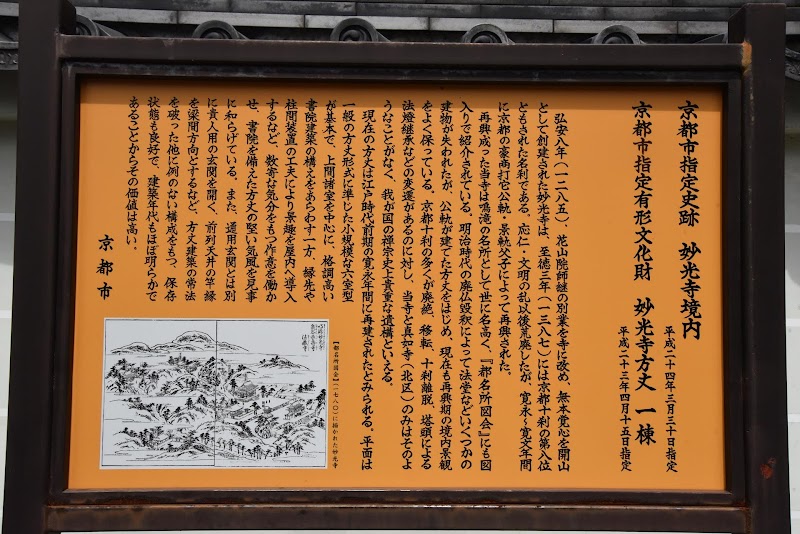 京都市指定史跡　妙光寺境内
平成二十四年三月三十日指定
京都市指定有形文化財　妙光寺方丈　一棟
平成二十三年四月十五日指定
弘安八年（一二八五）、花山院師継の別業を寺に改め、無本覚心を開山
として創建された妙光寺は、至徳三年（一三八七）には京都十刹の第八位
ともされた名刹である。応仁・文明の乱以後荒廃したが、寛永～寛文年間
に京都の豪商打它公軌・景軌父子によって再興された。
再興成った当寺は鳴滝の名所として世に名高く、『都名所図会』にも図
入りで紹介されている。明治時代の廃仏毀釈によって法堂などいくつかの
建物が失われたが、公軌が建てた方丈をはじめ、現在も再興期の境内景観
をよく保っている。京都十刹の多くが廃絶、移転、十刹離脱、塔頭による
法燈継承などの変遷があるのに対し、当寺と真如寺（北区）のみはそのよ
うなことがなく、我が国の禅宗史上貴重な遺構といえる。
現在の方丈は江戸時代前期の寛永年間に再建されたとみられる。平面は
一般の方丈形式に準じた小規模な六室型
が基本で、上間諸室を中心に、格調高い
書院建築の構えをあらわす一方、縁先や
柱間装置の工夫により景趣を屋内へ導入
するなど、数寄な気分をもつ作意を働か
せ、書院を備えた方丈の堅い気風を見事
に和らげている。また、通用玄関とは別
に貴人用の玄関を開く、前列天井の竿縁
を梁間方向とするなど、方丈建築の常法
を破った他に例のない構成をもつ。保存
状態も良好で、建築年代もほぼ明らかで
あることからその価値は高い。
京都市
【都名所図会】（一七八〇）に描かれた妙光寺